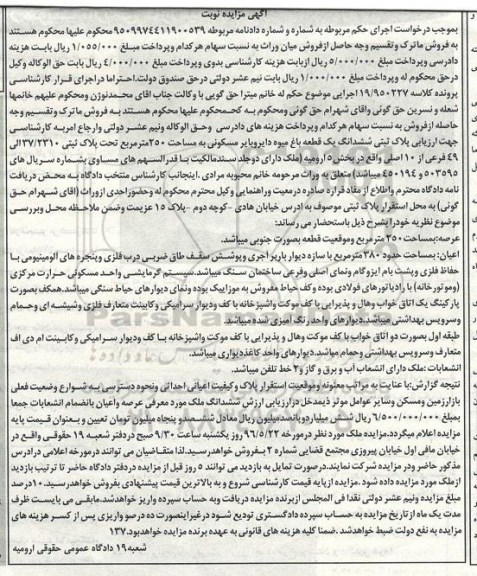 آگهی مزایده نوبت
بموجب درخواست اجرای حکم مربوطه به شماره و شماره دادنامه مربوطه ۹۵۰۹۹۷۴۴۱۱۹۰۰۵۳۹ محکوم علیها محکوم هستند
به فروش ماترک و تقسیم وجه حاصل ازفروش میان وراث به نسبت سهام هرکدام وپرداخت مبلغ ۱/۰۵۵/۰۰۰ ریال بابت هزینه
دادرسی وپرداخت مبلغ ۵/۰۰۰/۰۰۰ ریال ازبابت هزینه کارشناسی بدوی وپرداخت مبلغ ۴/۰۰۰/۰۰۰ ریال بابت حق الوکاله وکیل
درحق محکوم له پرداخت مبلغ ۱/۰۰۰/۰۰۰ ریال بابت نیم عشر دولتی درحق صندوق دولت.احتراما دراجرای قرار کارشناسی
پرونده کلاسه ۱۹/۹۵۰۲۲۷اجرایی موضوع حکم له خانم میترا حق گویی با وکالت جناب اقای محمدنوزن ومحکوم علیهم خانمها
شعله و نسرین حق گونی واقای شهرام حق گونی ومحکوم به که محکوم علیها محکوم هستند به فروش ماترک وتقسیم وجه
حاصله ازفروش به نسبت سهام هرکدام وپرداخت هزینه های دادرسی وحق الوکاله ونیم عشر دولتی وارجاع امر به کارشناسی
جهت ارزیابی پلاک ثبتی ششدانگ یک قطعه باغ میوه دایروبایر مسکونی به مساحت ۲۵۰مترمربع تحت پلاک ثبتی ۳۷/۲۳۱۰الی
۴۹ فرعی از ۱۰اصلی واقع در بخش ۵ارومیه (ملک دارای دوجلد سندمالکیت بنا قدرالسهم های مساوی بشماره سریال های
۵۰۳۰۹۵و ۴۵۰۱۹۴ میباشد) متعلق به وراث مرحومه خانم محبوبه مرادی .اینجانب کارشناس منتخب دادگاه به محض دریافت
نامه دادگاه محترم واطلاع از مفاد قراره صادره درمعیت وراهنمایی وکیل محترم محکوم له وحضوراحدی ازوراث (اقای شهرام حق
گونی) به محل استقرار پلاک ثبتی موصوف به ادرس خیابان هادی -کوچه دوم -پلاک ۱۵ عزیمت وضمن ملاحظه محل وبررسی
موضوع نظریه خودرا بشرح ذیل باستحضار می رساند:
عرصه:بمساحت ۲۵۰ مترمربع وموقعیت قطعه بصورت جنوبی میباشد.
اعیان: بمساحت حدود ۳۸۰ مترمربع با سازه دیوار باربر اجری وپوشش سقف طاق ضربی درب فلزی وپنجره های آلومینیومی با
حفاظ فلزی وپشت بام ایزوگام ونمای اصلی وفرعی ساختمان سنگ میباشد.سیستم گرمایشی واحد مسکونی حرارت مرکزی
(وموتورخانه) با رادیاتورهای فولادی بوده وکف حیاط مفروش به موزاییک بوده ونمای دیوارهای حیاط سنگی میباشد.همکف بصورت
پارکینگ یک اتاق خواب وهال و پذیرایی با کف موکت واشپزخانه با کف ودیوار سرامیکی وکابینت متعارف فلزی وشیشه ای وحمام
وسرویس بهداشتی میباشد.دیوارهای واحد رنگ آمیزی شده میباشد.
طبقه اول بصورت دو اتاق خواب با کف موکت وهال و پذیرایی با کف موکت واشپزخانه با کف ودیوار سرامیکی وکابینت ام دی اف
متعارف وسرویس بهداشتی وحمام میاشد.دیوارهای واحد کاغذدیواری میباشد.
انشعابات :ملک دارای انشعاب آب و برق و گاز و۲ خط تلفن میباشد.
نتیجه گزارش:با عنایت به مراتب معنونه وموقعیت استقرار پلاک وکیفیت اعیانی احداثی ونحوه دسترسی به شوارع وضعیت فعلی
بازارزمین ومسکن وسایر عوامل موثر ذیمدخل درارزیابی ارزش ششدانگ ملک مورد معرفی عرصه واعیان بانضمام انشعابات جمعا
بمبلغ ۶/۵۰۰/۰۰۰/۰۰۰ ریال شش میلیاردوپانصدمیلیون ریال معادل ششصد وپنجاه میلیون تومان تعیین و بعنوان قیمت پایه
مزایده اعلام میگردد.مزایده ملک مورد نظر درمورخه ۹۶/۵/۲۲ روز یکشنبه ساعت ۹/۳۰ صبح دردفتر شعبه ۱۹ حقوقی واقع در
خیابان مافی اول خیابان پیروزی مجتمع قضایی شماره ۲ بفروش خواهدرسید.لذا متقاضیان می توانند درمورخه اعلامی درادرس
مذکور حاضر ودر مزایده شرکت نمایند.درصورت تمایل به بازدید می توانند ۵ روز قبل از مزایده دردفتر دادگاه حاضر تا ترتیب بازدید
ازملک مورد مزایده داده شود .مزایده ازپایه قیمت کارشناسی شروع و به بالاترین قیمت پیشنهادی بفروش خواهدرسید.۱۰درصد
مبلغ مزایده ونیم عشر دولتی نقدا فی المجلس ازبرنده مزایده دریافت وبه حساب سپرده واریز خواهدشد.مابقی می بایست ظرف
مدت یک ماه از تاریخ مزایده به حساب سپرده دادگستری تودیع شود درغیراینصورت ده درصد واریزی پس از کسر هزینه های
مزایده به نفع دولت ضبط خواهدشد .ضمنا کلیه هزینه های قانونی به عهده برنده مزایده خواهدبود.۱۳۷
شعبه ۱۹ دادگاه عمومی حقوقی ارومیه